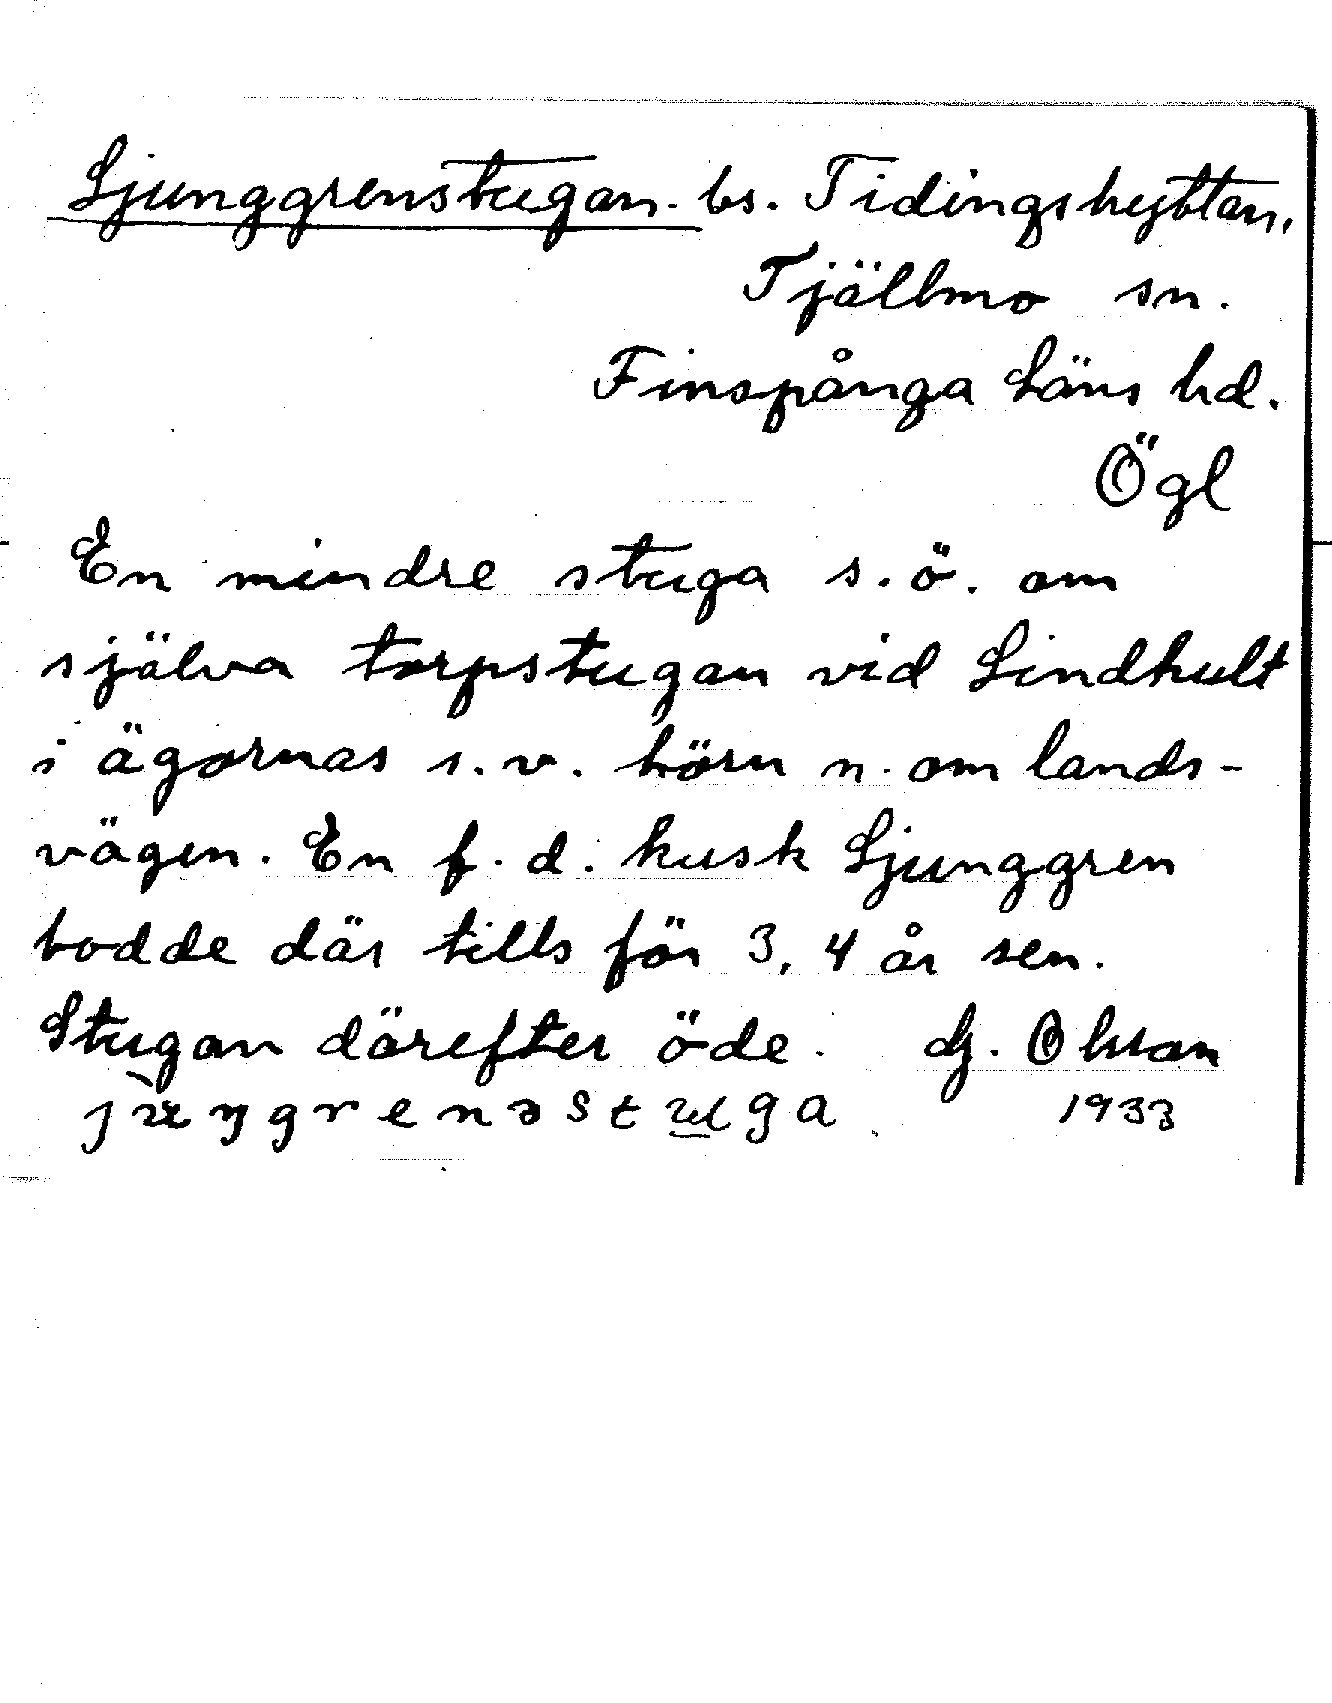 Ljunggrenstugan. bs. Tidingshyttan,
Tjällmo sn.
Finspånga läns hd.
Ögl
En mindre stuga s.ö. om
själva torpstugan vid Lindhult
i ägornas s.v. hörn n. om lands-
vägen. En f.d. kusk Ljunggren
bodde där tills för 3, 4 år sen.
Stugan därefter öde. G. Olsson
1933